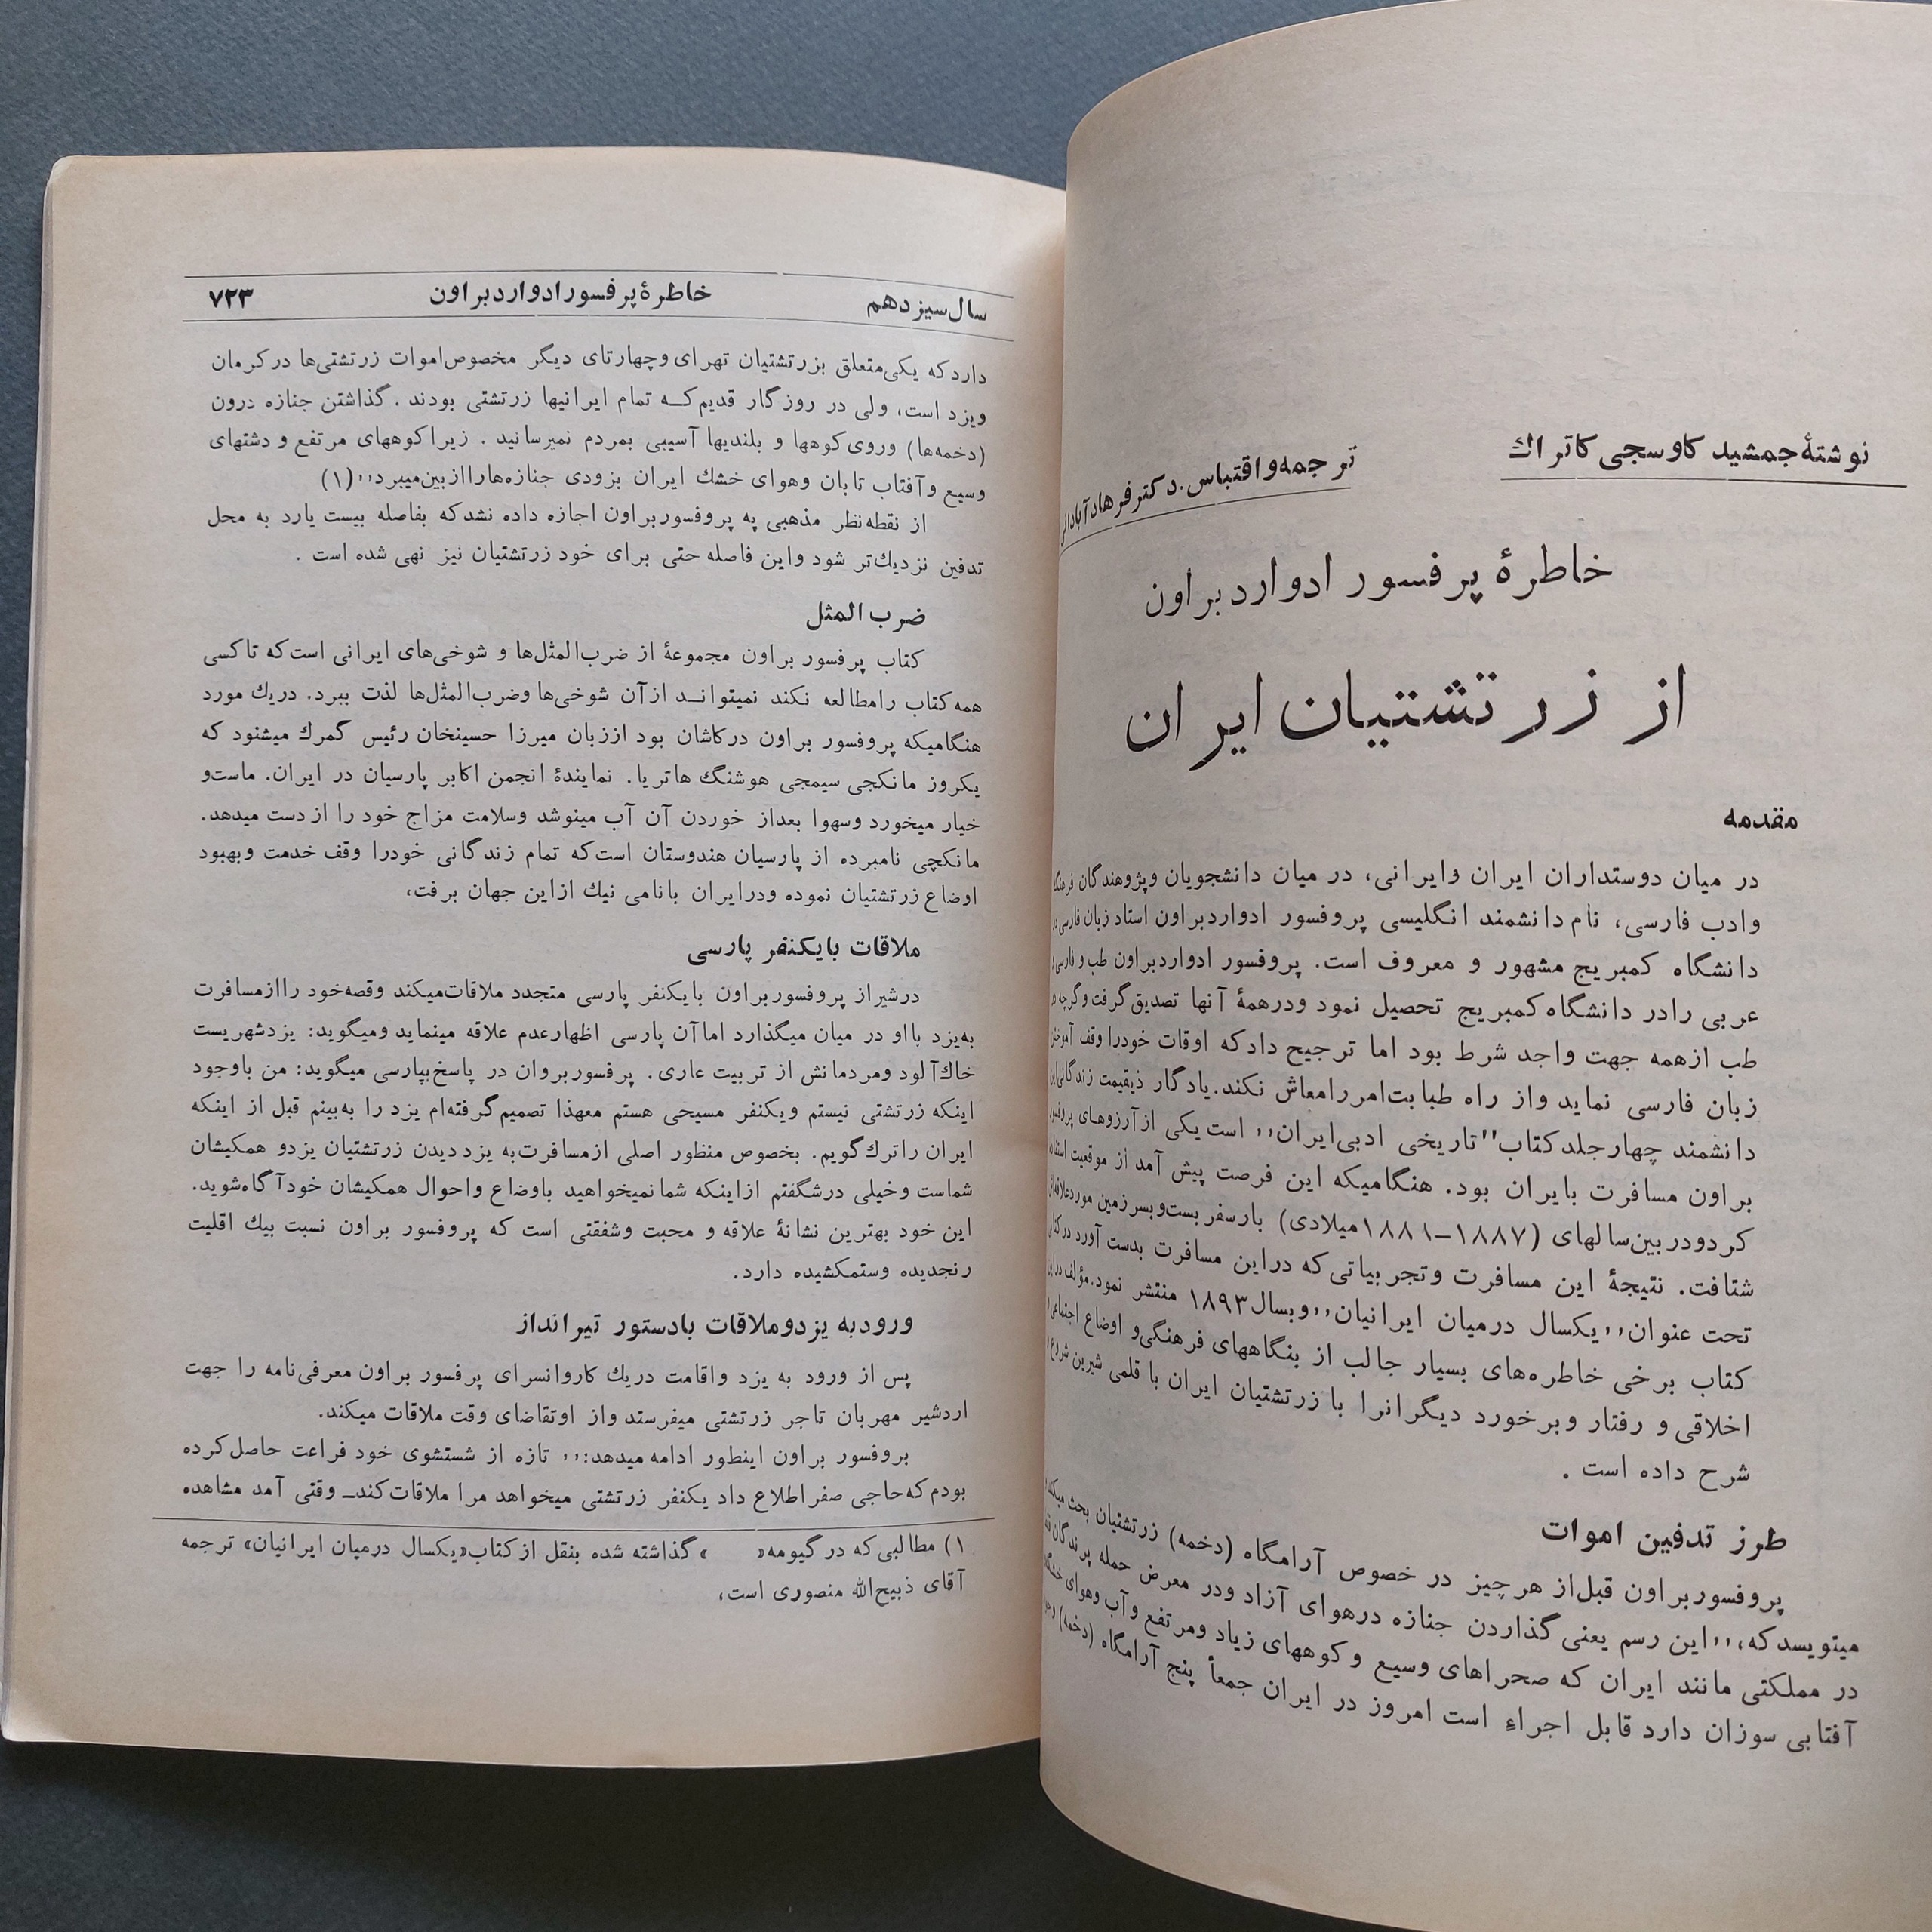 نوشتهٔ جمشید کاوسجی کاتراك
ترجمه و اقتباس. دکتر فرهاد آبادانی
خاطرهٔ پرفسور ادوارد براون
از زرتشتیان ایران
مقدمه
در میان دوستداران ایران وایرانی، در میان دانشجویان وپژوهندگان فرهنگ
وادب فارسی، نام دانشمند انگلیسی پروفسور ادوارد براون استاد زبان فارسی در
دانشگاه کمبریج مشهور و معروف است. پروفسور ادوارد براون طب و فارسی و
عربی را در دانشگاه کمبریج تحصیل نمود ودرهمهٔ آنها تصدیق گرفت وگرچه در
طب ازهمه جهت واجد شرط بود اما ترجیح داد که اوقات خودرا وقف آموختن
زبان فارسی نماید واز راه طبابت امر رامعاش نکند. یادگار ذیقیمت زندگانی این
دانشمند چهار جلد کتاب "تاریخی ادبی ایران,, است یکی از آرزوهای پروفسور
براون مسافرت بایران بود. هنگامیکه این فرصت پیش آمد از موقعیت استفاده
کرد ودر بین سالهای (۱۸۸۷-۱۸۸۸ میلادی) بار سفر بست و بسرزمین مورد علاقه
شتافت. نتیجهٔ این مسافرت وتجربیاتی که دراین مسافرت بدست آورد در کتابی
تحت عنوان,,یکسال درمیان ایرانیان,, وبسال ۱۸۹۳ منتشر نمود. مؤلف در این
کتاب برخی خاطره‌های بسیار جالب از بنگاههای فرهنگی و اوضاع اجتماعی و
اخلاقی و رفتار وبرخورد دیگرانرا با زرتشتیان ایران با قلمی شیرین شروع و
شرح داده است .
طرز تدفین اموات
پروفسور براون قبل از هرچیز در خصوص آرامگاه (دخمه) زرتشتیان بحث میکند
مینویسد که،,,این رسم یعنی گذاردن جنازه درهوای آزاد ودر معرض حمله پرندگان
در مملکتی مانند ایران که صحراهای وسیع و کوههای زیاد ومرتفع وآب وهوای خشک
آفتابی سوزان دارد قابل اجراء است امروز در ایران جمعاً پنج آرامگاه (دخمه)
سال سیزدهم
خاطرهٔ پرفسور ادوارد براون
۷۲۳
دارد که یکی متعلق بزرتشتیان تهرای وچهارتای دیگر مخصوص اموات زرتشتی‌ها در کرمان
ویزد است، ولی در روزگار قدیم کـه تمام ایرانیها زرتشتی بودند . گذاشتن جنازه درون
(دخمه‌ها) وروی کوهها و بلندیها آسیبی بمردم نمیرسانید . زیرا کوههای مرتفع و دشتهای
وسیع وآفتاب تابان وهوای خشك ایران بزودی جنازه‌هارا ازبین میبرد,,(۱)
از نقطه نظر مذهبی په پروفسور براون اجازه داده نشد که بفاصله بیست یارد به محل
تدفین نزدیك‌تر شود واین فاصله حتی برای خود زرتشتیان نیز نهی شده است .
ضرب المثل
کتاب پرفسور براون مجموعهٔ از ضرب‌المثل‌ها و شوخی‌های ایرانی است که تا کسی
همه کتاب را مطالعه نکند نمیتوانـد از آن شوخی‌ها وضرب‌المثل‌ها لذت ببرد. در یك مورد
هنگامیکه پروفسور براون در کاشان بود از زبان میرزا حسینخان رئیس گمرك میشنود که
یکروز مانکجی سیمجی هوشنگ هاتریا. نمایندهٔ انجمن اکابر پارسیان در ایران. ماست و
خیار میخورد وسهوا بعداز خوردن آن آب مینوشد وسلامت مزاج خود را از دست میدهد.
مانکچی نامبرده از پارسیان هندوستان است که تمام زندگانی خودرا وقف خدمت وبهبود
اوضاع زرتشتیان نموده ودر ایران بانامی نیك ازاین جهان برفت،
ملاقات بایکنفر پارسی
در شیراز پروفسور براون با یکنفر پارسی متجدد ملاقات میکند وقصه خود را از مسافرت
به یزد بااو در میان میگذارد اما آن پارسی اظهار عدم علاقه مینماید ومیگوید: یزد شهریست
خاك آلود ومردمانش از تربیت عاری. پرفسور بروان در پاسخ بپارسی میگوید: من باوجود
اینکه زرتشتی نیستم ویکنفر مسیحی هستم معهذا تصمیم گرفته‌ام یزد را به‌بینم قبل از اینکه
ایران را ترك گویم. بخصوص منظور اصلی از مسافرت به یزد دیدن زرتشتیان یزدو همکیشان
شماست وخیلی درشگفتم ازاینکه شما نمیخواهید باوضاع واحوال همکیشان خود آگاه شوید.
این خود بهترین نشانهٔ علاقه و محبت وشفقتی است که پروفسور براون نسبت بیك اقلیت
رنجدیده وستمکشیده دارد.
ورود به یزد وملاقات بادستور تیرانداز
پس از ورود به یزد واقامت در یك کاروانسرای پرفسور براون معرفی‌نامه را جهت
اردشیر مهربان تاجر زرتشتی میفرستد واز او تقاضای وقت ملاقات میکند.
بروفسور براون اینطور ادامه میدهد:,, تازه از شستشوی خود فراعت حاصل کرده
بودم که حاجی صفر اطلاع داد یکنفر زرتشتی میخواهد مرا ملاقات کند_ وقتی آمد مشاهده
۱) مطالبی که در گیومه« » گذاشته شده بنقل از کتاب«یکسال درمیان ایرانیان» ترجمه
آقای ذبیح‌الله منصوری است،